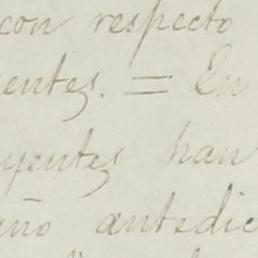 con respecto
entes. = En
yentes han
año antedic